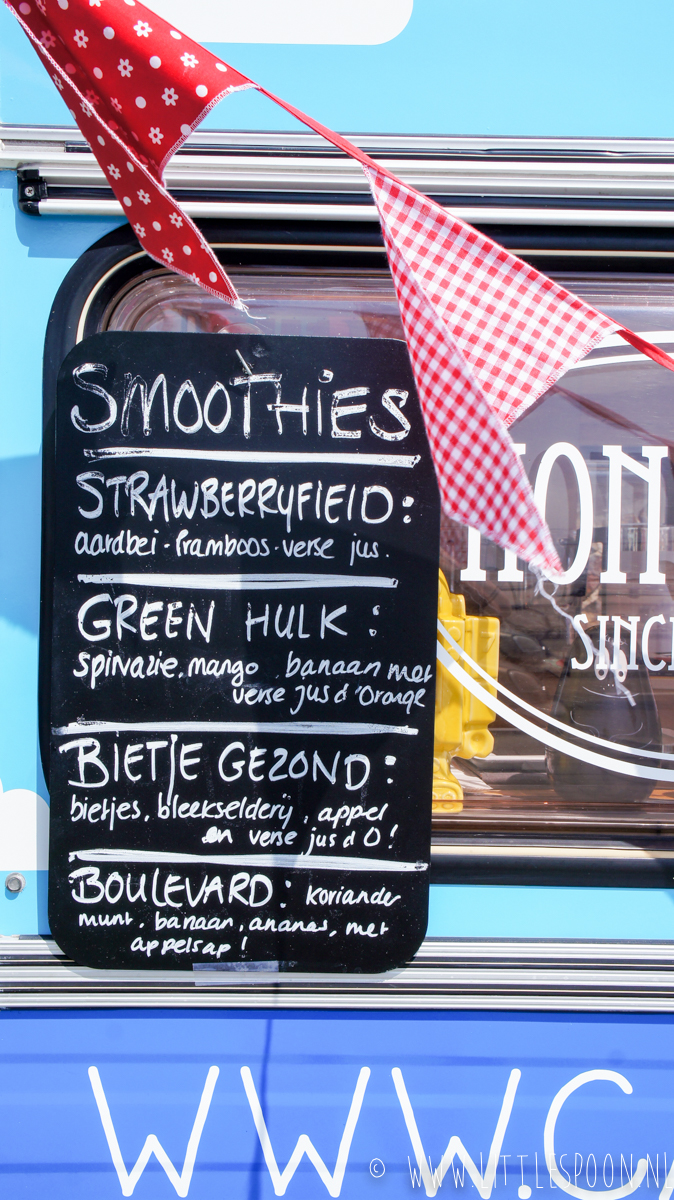 SMOOTHIES
STRAWBERRYFIELD:
aardbei - framboos - verse jus.
GREEN HULK:
spinazie, mango, banaan met
verse jus d'Orange
BIETJE GEZOND:
bietjes, bleekselderij, appel
en verse jus d O!
BOULEVARD: koriander
munt, banaan, ananas, met
appelsap!
HON
SINCE
WWW.C
© WWW.LITTLESPOON.NL